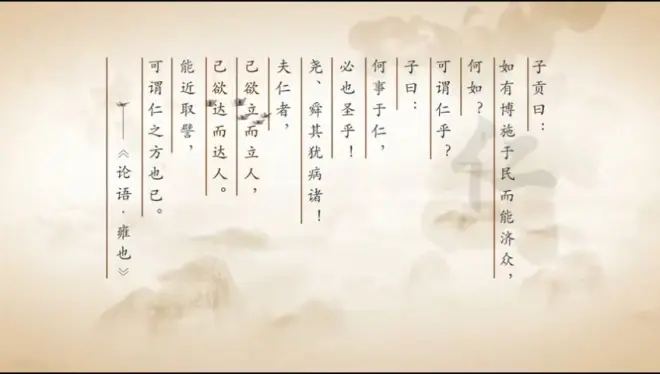 子贡曰：
如有博施于民而能济众，
何如？
可谓仁乎？
子曰：
何事于仁，
必也圣乎！
尧、舜其犹病诸！
夫仁者，
己欲立而立人，
己欲达而达人。
能近取譬，
可谓仁之方也已。
——《论语·雍也》
仁